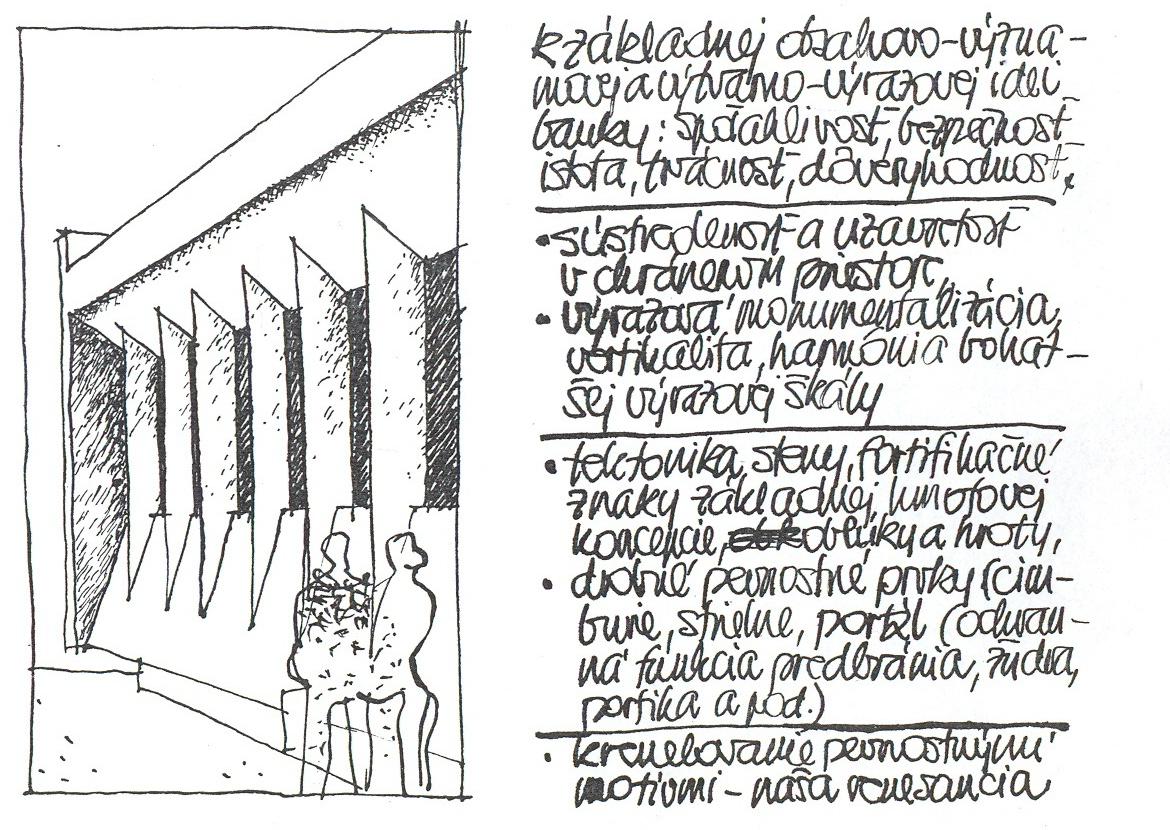 k základnej obsahovo-význa-
movej a výtvarno-výrazovej idei
banky: spoľahlivosť, bezpečnosť
istota, tvácnosť, dôveryhodnosť,
• sústredenosť a uzavretosť
v chránenom priestore,
• výrazová monumentalizácia,
vertikalita, harmónia bohat-
šej výrazovej škály
• tektonika, steny, fortifikačné
znaky základnej, hmotovej
koncepcie, oblúky a hroty,
• drobné pevnostné prvky (cim-
burie, strielne, portál (odvan-
ná funkcia predbránia, žudra,
portika a pod.)
• krenelovanie pevnostnými
motivmi – naša renesancia